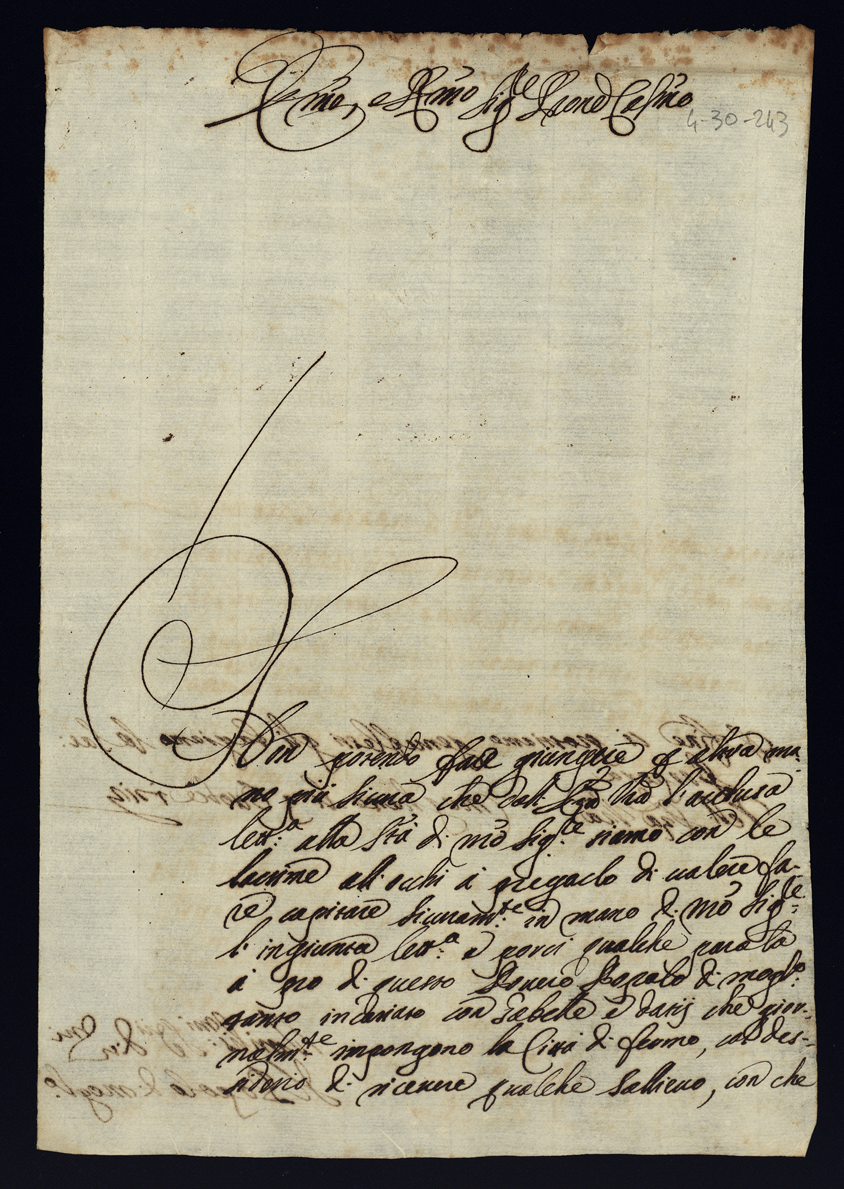 Emo, e Rmo Sig.re Pron Colmo
4-30-243
Non potendo fare giungere p altra ma:
no più sicura che dall' Sig Vrã l'acclusa
lett.a alla Stà di Nrõ Sig.re siamo con le
lacrime all' occhi à pregarlo di volere fa-
re capitare sicuram.te in mano di Nrõ Sig.re
l'ingiunta lett.a e porvi qualche parola
à prò di questo Povero Popolo di
tanto incaricato con Gabelle e datij che gior-
nalm.te impongono la Città di fermo, col des-
siderio di ricevere qualche Sollievo, con che